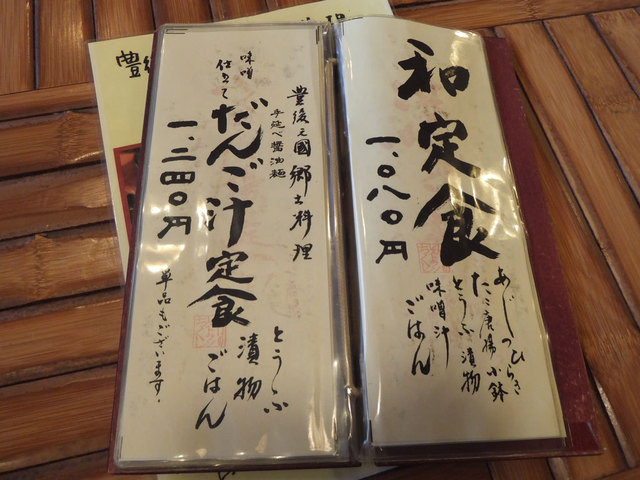 和定食
一、〇八〇円
あじつひらき
たこ唐揚 小鉢
とうふ 漬物
味噌汁
ごはん
豊後之國 郷土料理
手延べ醤油麺
味噌
仕立て
だんご汁定食
一、二四〇円
とうふ
漬物
ごはん
単品もございます。
豊後